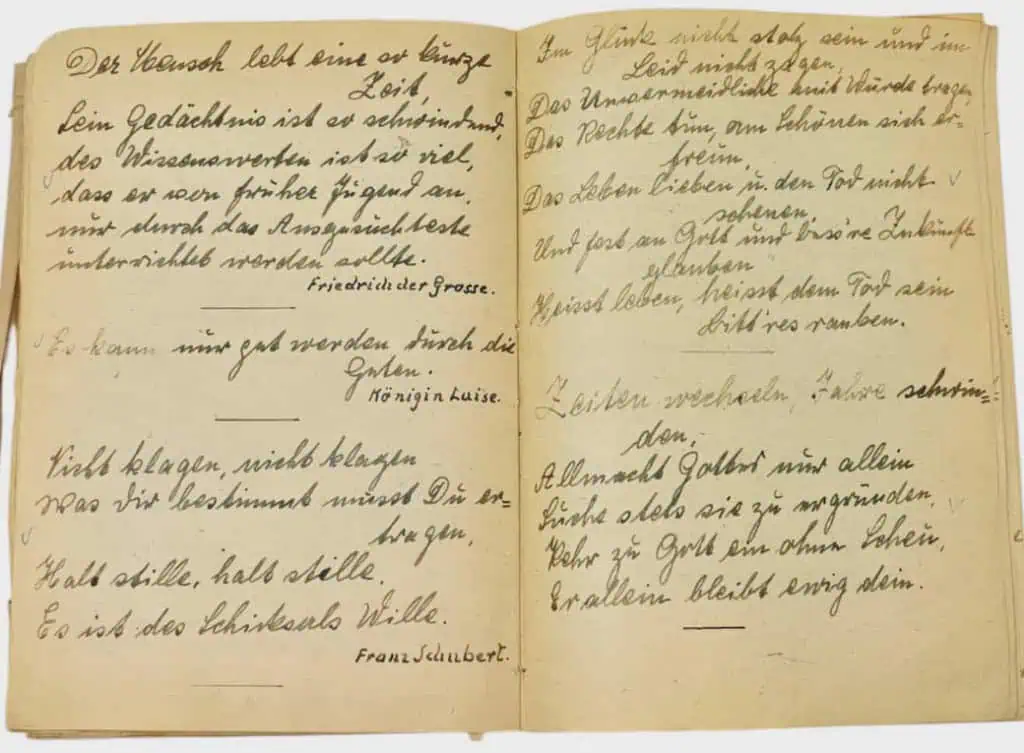 Der Mensch lebt eine so kurze
Zeit,
Sein Gedächtnis ist so schwindend,
des Wissenswerten ist so viel,
dass er von früher Jugend an,
nur durch das Ausgesuchteste
unterrichtet werden sollte.
Friedrich der Grosse.
Es kann nur gut werden durch die
Guten.
Königin Luise.
Nicht klagen, nicht klagen
Was Dir bestimmt musst Du er=
tragen,
Halt stille, halt stille.
Es ist des Schicksals Wille.
Franz Schubert.
Im Glück nicht stolz sein und im
Leid nicht zagen,
Das Unvermeidliche mit Würde tragen,
Das Rechte tun, am Schönen sich er=
freun,
Das Leben lieben u. den Tod nicht
scheuen,
Und fest an Gott und bess're Zukunft
glauben
Heisst leben, heisst dem Tod sein
Bitt'res rauben.
Zeiten wechseln, Jahre schwin=
den,
Allmacht Gottes nur allein
Suche stets sie zu ergründen,
Kehr zu Gott ein ohne Scheu,
Er allein bleibt ewig dein.